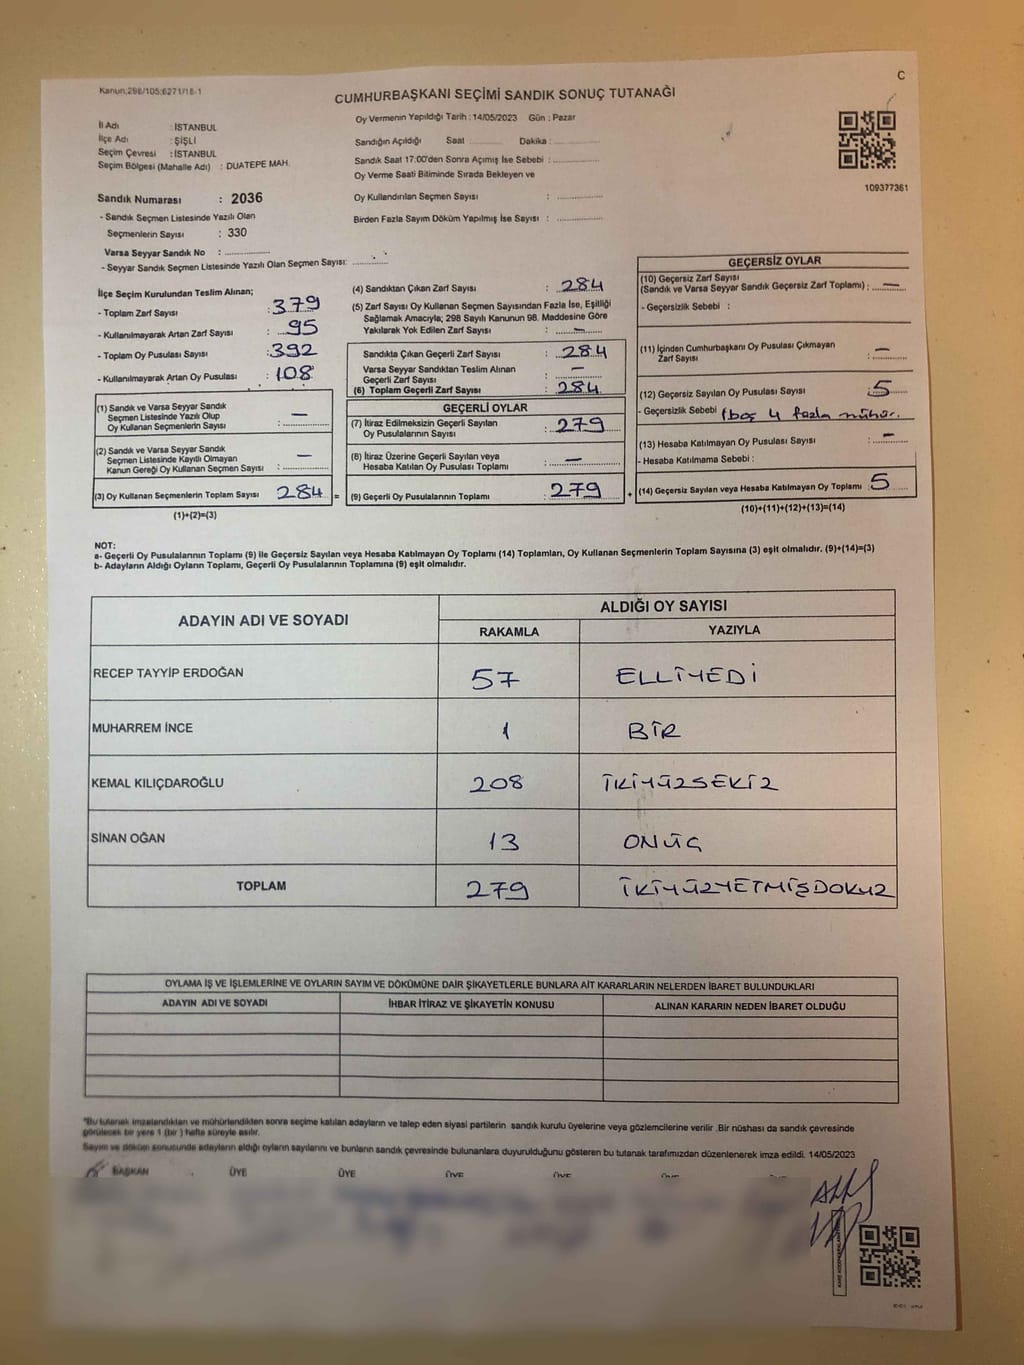 C
Kanun;298/105;6271/18-1
CUMHURBAŞKANI SEÇİMİ SANDIK SONUÇ TUTANAĞI
İl Adı : İSTANBUL
İlçe Adı : ŞİŞLİ
Seçim Çevresi : İSTANBUL
Seçim Bölgesi (Mahalle Adı) : DUATEPE MAH.
Oy Vermenin Yapıldığı Tarih : 14/05/2023 Gün : Pazar
Sandığın Açıldığı Saat ........... Dakika : ...........
Sandık Saat 17:00'den Sonra Açımış İse Sebebi : ...........
Oy Verme Saati Bitiminde Sırada Bekleyen ve
Oy Kullandırılan Seçmen Sayısı : ...........
Birden Fazla Sayım Döküm Yapılmış İse Sayısı : ...........
109377361
Sandık Numarası : 2036
- Sandık Seçmen Listesinde Yazılı Olan
Seçmenlerin Sayısı : 330
Varsa Seyyar Sandık No : ...........
- Seyyar Sandık Seçmen Listesinde Yazılı Olan Seçmen Sayısı: ...........
İlçe Seçim Kurulundan Teslim Alınan;
- Toplam Zarf Sayısı : 379
- Kullanılmayarak Artan Zarf Sayısı : 95
- Toplam Oy Pusulası Sayısı : 392
- Kullanılmayarak Artan Oy Pusulası : 108
(1) Sandık ve Varsa Seyyar Sandık
Seçmen Listesinde Yazılı Olup
Oy Kullanan Seçmenlerin Sayısı : —
(2) Sandık ve Varsa Seyyar Sandık
Seçmen Listesinde Kayıtlı Olmayan
Kanun Gereği Oy Kullanan Seçmen Sayısı : —
(3) Oy Kullanan Seçmenlerin Toplam Sayısı 284 =
(1)+(2)=(3)
(4) Sandıktan Çıkan Zarf Sayısı : 284
(5) Zarf Sayısı Oy Kullanan Seçmen Sayısından Fazla İse, Eşitliği
Sağlamak Amacıyla; 298 Sayılı Kanunun 98. Maddesine Göre
Yakılarak Yok Edilen Zarf Sayısı : —
Sandıkta Çıkan Geçerli Zarf Sayısı : 284
Varsa Seyyar Sandıktan Teslim Alınan
Geçerli Zarf Sayısı : —
(6) Toplam Geçerli Zarf Sayısı : 284
GEÇERLİ OYLAR
(7) İtiraz Edilmeksizin Geçerli Sayılan
Oy Pusulalarının Sayısı : 279
(8) İtiraz Üzerine Geçerli Sayılan veya
Hesaba Katılan Oy Pusulası Toplamı : —
(9) Geçerli Oy Pusulalarının Toplamı : 279 +
GEÇERSİZ OYLAR
(10) Geçersiz Zarf Sayısı
(Sandık ve Varsa Seyyar Sandık Geçersiz Zarf Toplamı) : —
- Geçersizlik Sebebi :
(11) İçinden Cumhurbaşkanı Oy Pusulası Çıkmayan
Zarf Sayısı : —
(12) Geçersiz Sayılan Oy Pusulası Sayısı : 5
- Geçersizlik Sebebi 1 boş 4 fazla mühür.
(13) Hesaba Katılmayan Oy Pusulası Sayısı : —
- Hesaba Katılmama Sebebi :
(14) Geçersiz Sayılan veya Hesaba Katılmayan Oy Toplamı : 5
(10)+(11)+(12)+(13)=(14)
NOT:
a- Geçerli Oy Pusulalarının Toplamı (9) ile Geçersiz Sayılan veya Hesaba Katılmayan Oy Toplamı (14) Toplamları, Oy Kullanan Seçmenlerin Toplam Sayısına (3) eşit olmalıdır. (9)+(14)=(3)
b- Adayların Aldığı Oyların Toplamı, Geçerli Oy Pusulalarının Toplamına (9) eşit olmalıdır.
ADAYIN ADI VE SOYADI ALDIĞI OY SAYISI
RAKAMLA YAZIYLA
RECEP TAYYİP ERDOĞAN 57 ELLİYEDİ
MUHARREM İNCE 1 BİR
KEMAL KILIÇDAROĞLU 208 İKİYÜZSEKİZ
SİNAN OĞAN 13 ONÜÇ
TOPLAM 279 İKİYÜZYETMİŞDOKUZ
OYLAMA İŞ VE İŞLEMLERİNE VE OYLARIN SAYIM VE DÖKÜMÜNE DAİR ŞİKAYETLERLE BUNLARA AİT KARARLARIN NELERDEN İBARET BULUNDUKLARI
ADAYIN ADI VE SOYADI İHBAR İTİRAZ VE ŞİKAYETİN KONUSU ALINAN KARARIN NEDEN İBARET OLDUĞU
*Bu tutanak imzalandıktan ve mühürlendikten sonra seçime katılan adayların ve talep eden siyasi partilerin sandık kurulu üyelerine veya gözlemcilerine verilir .Bir nüshası da sandık çevresinde
görülecek bir yere 1 (bir ) hafta süreyle asılır.
Sayım ve döküm sonusunda adayların aldığı oyların sayılarını ve bunların sandık çevresinde bulunanlara duyurulduğunu gösteren bu tutanak tarafımızdan düzenlenerek imza edildi. 14/05/2023
BAŞKAN ÜYE ÜYE ÜYE ÜYE ÜYE ÜYE